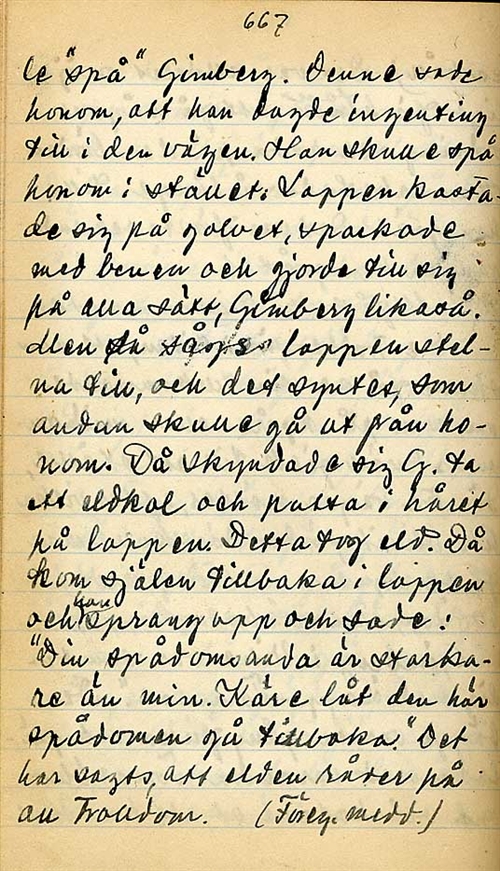 667
le "spå" Gimberg. Denne sade
honom, att han dugde ingenting
till i den vägen. Han skulle spå
honom i stället. Lappen kasta-
de sig på golvet, sparkade
med benen och gjorde till sig
på alla sätt, Gimberg likaså.
Men så sågs lappen stel-
na till, och det syntes, som
andan skulle gå ut från ho-
nom. Då skyndade sig G. ta
ett eldkol och putta i håret
på lappen. Detta tog eld. Då
kom själen tillbaka i lappen
och han sprang upp och sade:
"Din spådomsanda är starka-
re än min. Käre låt den här
spådomen gå tillbaka." Det
har sagts, att elden råder på
all trolldom. (Föreg. medd.)